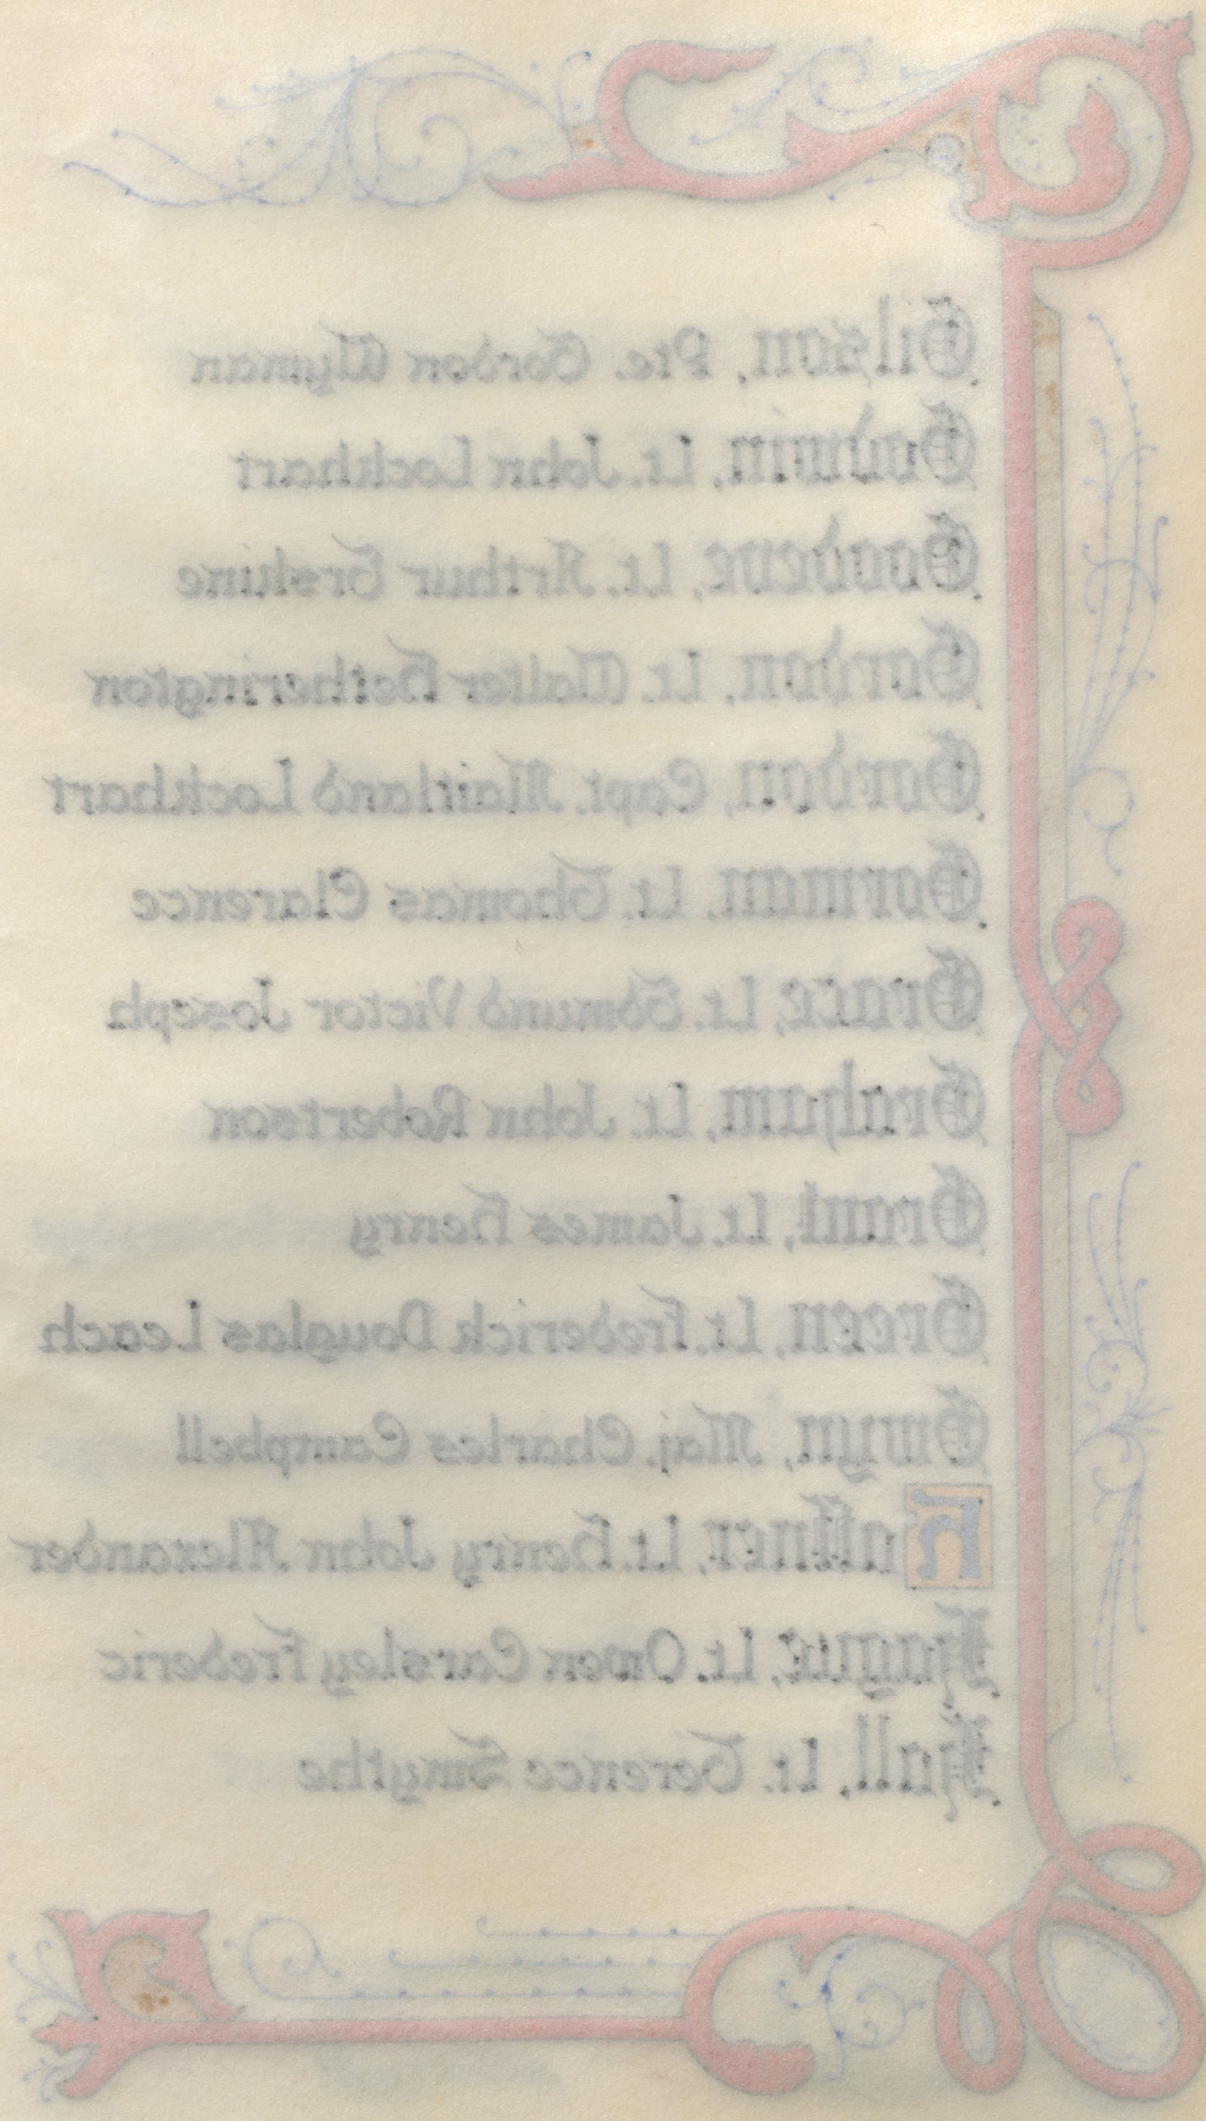 Gilson, Pte. Gordon Wyman
Godwin, Lt. John Lockhart
Goodeve, Lt. Arthur Erskine
Gordon, Lt. Walter Hetherington
Gordon, Capt. Maitland Lockhart
Gorman, Lt. Thomas Clarence
Grace, Lt. Edmund Victor Joseph
Graham, Lt. John Robertson
Grant, Lt. James Henry
Green, Lt. Frederick Douglas Leach
Gwyn, Maj. Charles Campbell
Haffner, Lt. Henry John Alexander
Hague, Lt. Owen Carsley Frederic
Hall, Lt. Terence Smythe